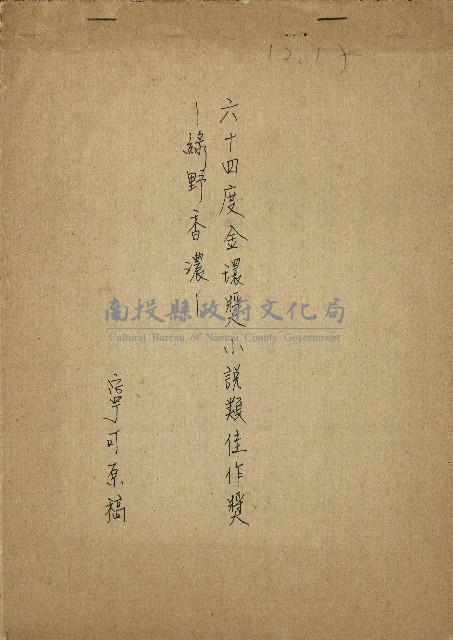 12.17
六十四度金環獎小説類佳作獎
–綠野香濃–
寧可原稿
南投縣政府文化局
Cultural Bureau of Nantou County Government